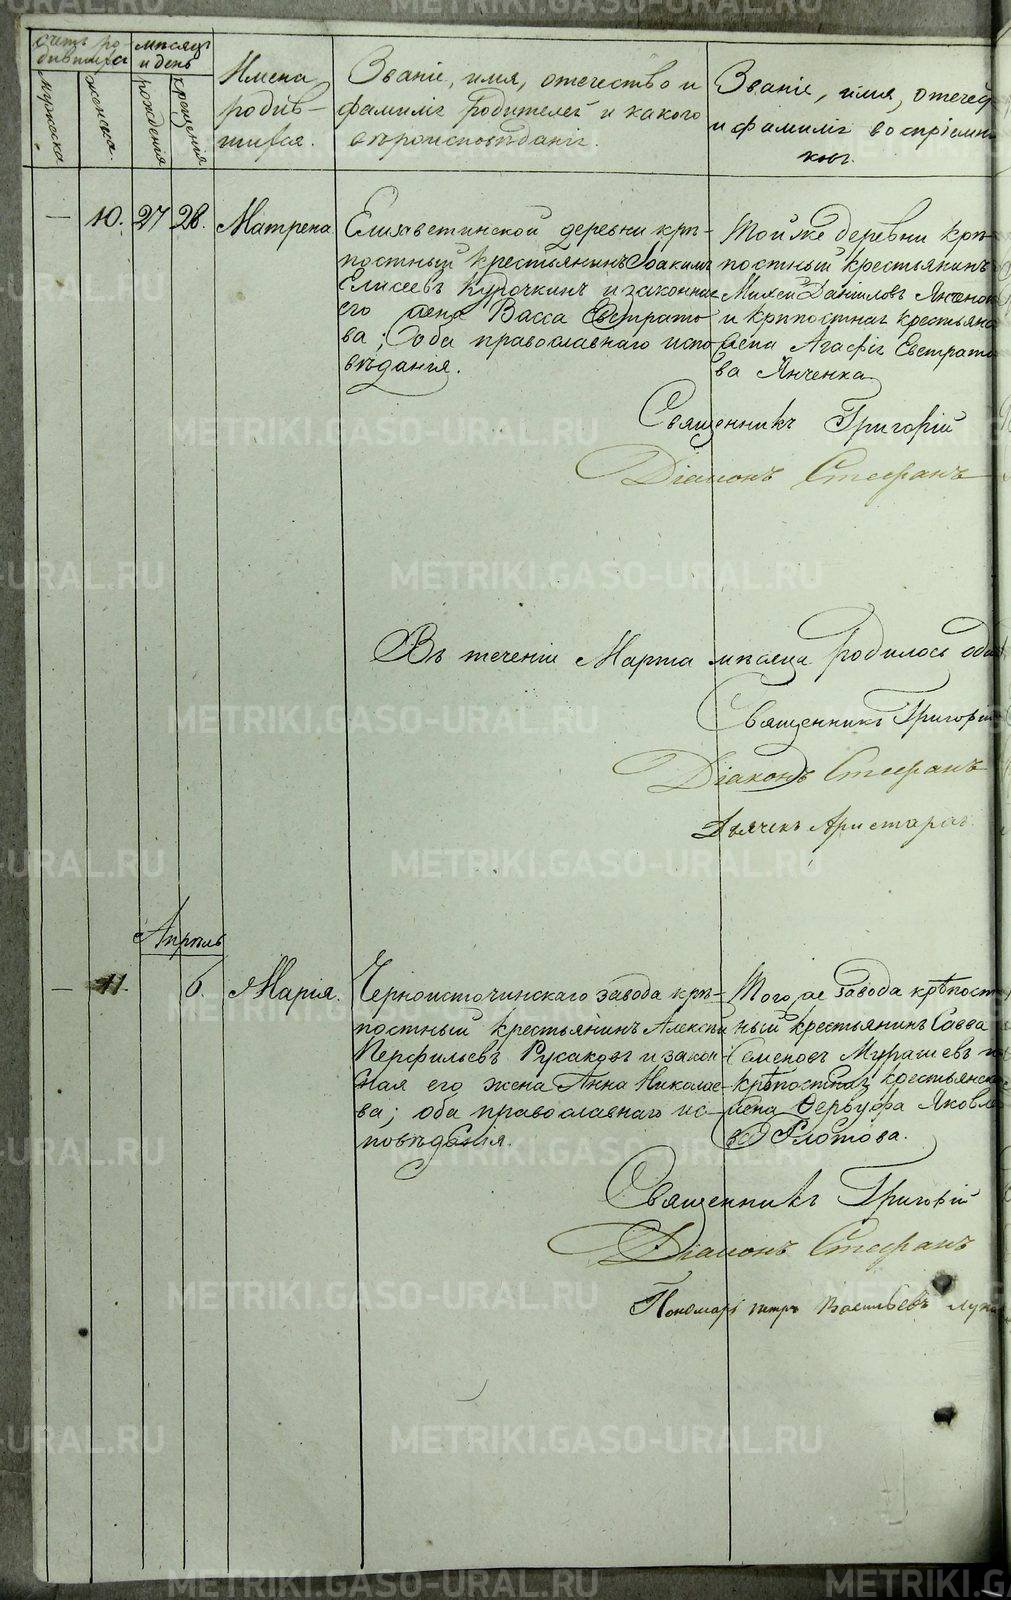 Счетъ ро-
дившихся
мѣсяцъ
и день
Имена
родив-
шихся.
Званіе, имя, отчество и
фамилія родителей и какого
вѣроисповѣданія.
Званіе, имя, отчес
и фамилія воспріемни
ковъ.
мужеска
женска.
рожденія
крещенія
— 10. 27 28. Матрена
Елисаветинской деревни крѣ-
постный крестьянинъ Іоакимъ
Елисеевъ Курочкинъ и законная
его жена Васса Евстратье
ва; Оба православнаго испо
вѣданія.
Той же деревни крѣ-
постный крестьянинъ
Михей Даніиловъ
и крѣпостная крестьянс
жена Агафія Евстрато
ва Янченка
Священникъ Григорій
Діаконъ Стефанъ
Въ теченіи Марта мѣсяца родилось оди
Священникъ Григорій
Діаконъ Стефанъ
Дьячекъ Аристархъ
Апрѣль
— 11. 6. Марія.
Черноисточинскаго завода крѣ-
постный крестьянинъ Алексѣй
Перфильевъ Русаковъ и закон-
ная его жена Анна Николае-
ва; оба православнаго ис-
повѣданія.
Того же завода крѣпост
ный крестьянинъ Савва
Семеновъ Мурашевъ
крѣпостная крестьянска
жена Яковле
ва Федотова.
Священникъ Григорій
Діаконъ Стефанъ
Пономарь Петръ Васильевъ
METRIKI.GASO-URAL.RU